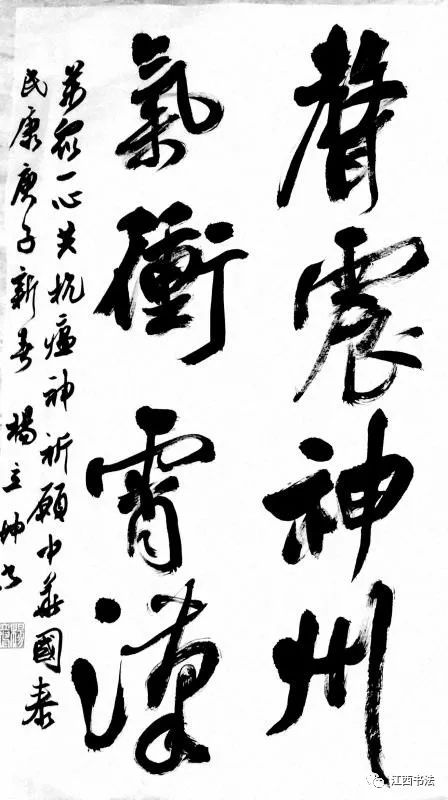 聲震神州
氣衝霄漢
萬眾一心共抗瘟神祈願中華國泰
民康庚子新春 楊立坤書
江西书法